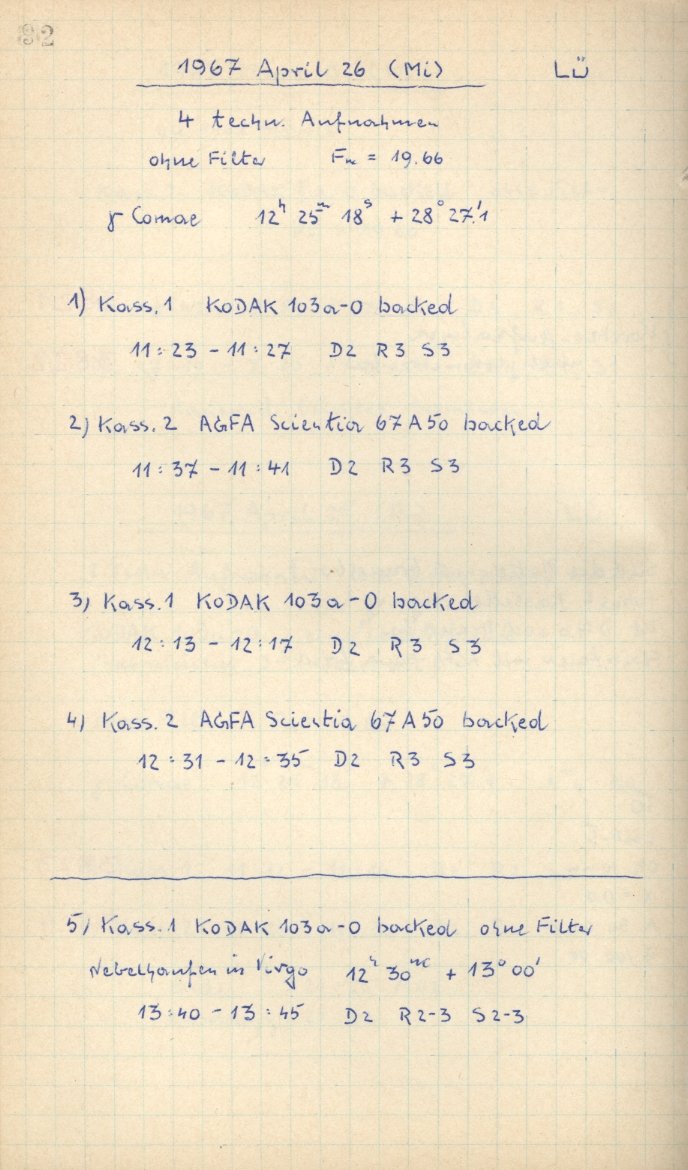 92
1967 April 26 (Mi) LÜ
4 techn. Aufnahmen
ohne Filter Fm = 19.66
γ Comae 12ʰ 25ᵐ 18ˢ + 28° 27.'1
1) Kass. 1 KODAK 103a-O backed
11:23 - 11:27 D2 R3 S3
2) Kass. 2 AGFA Scientia 67A50 backed
11:37 - 11:41 D2 R3 S3
3) Kass. 1 KODAK 103a-O backed
12:13 - 12:17 D2 R3 S3
4) Kass. 2 AGFA Scientia 67A50 backed
12:31 - 12:35 D2 R3 S3
5) Kass. 1 KODAK 103a-O backed ohne Filter
Nebelhaufen in Virgo 12ʰ 30ᵐ + 13° 00'
13:40 - 13:45 D2 R2-3 S2-3